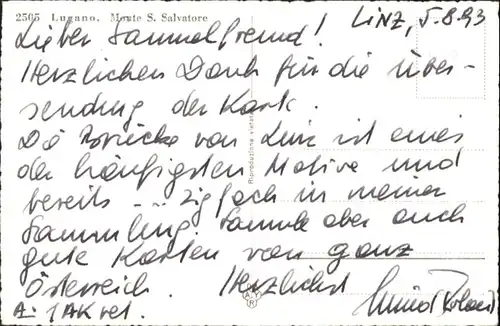 2505 Lugano. Monte S. Salvatore
LINZ, 5.8.93
Lieber Sammelfreund!
Herzlichen Dank für die Über-
sendung der Karte.
Die Brücke von Linz ist eines
der häufigsten Motive und
bereits -.. zigfach in meiner
Sammlung. Sammle aber auch
gute Karten von ganz
Österreich. Herzlichst
A: 1AK ret.